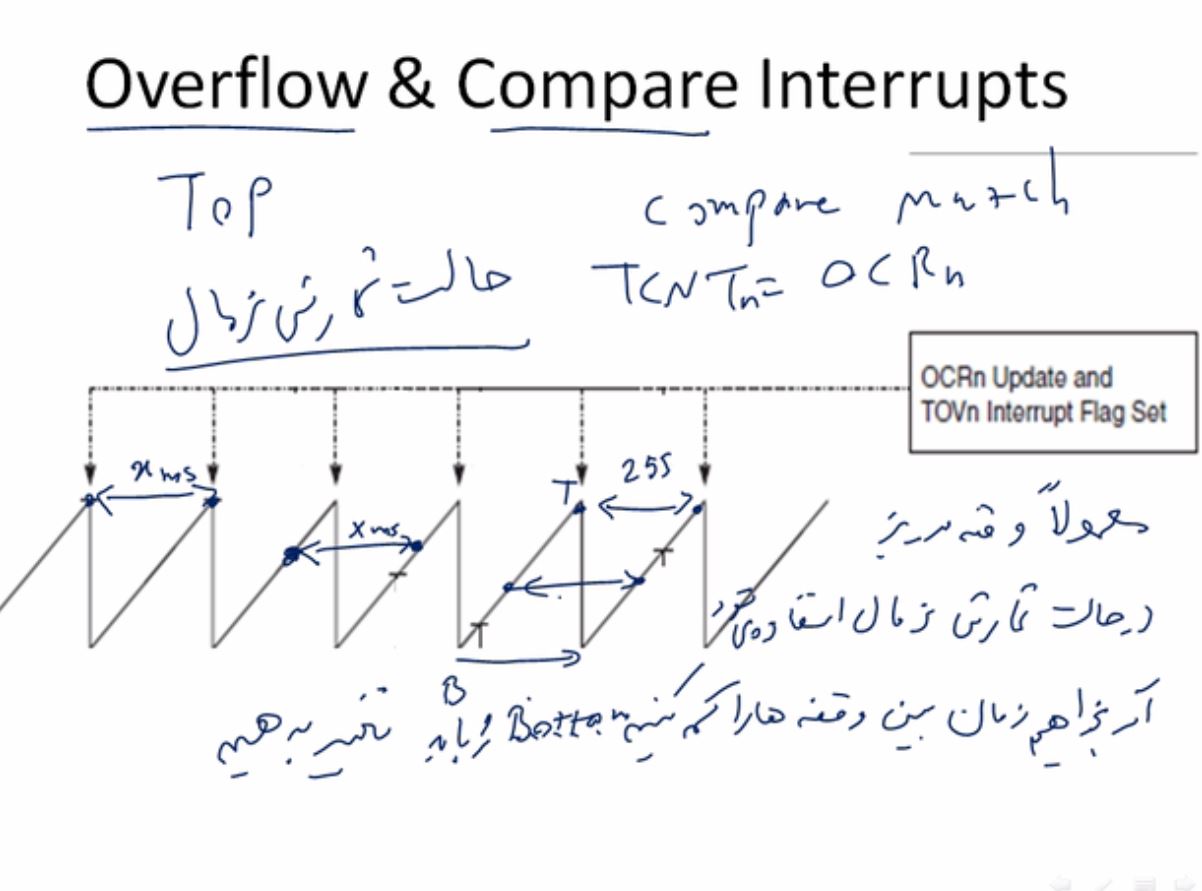 Overflow & Compare Interrupts
Top
Compare match
حالت شمارش نرمال
TCNTn = OCRn
OCRn Update and
TOVn Interrupt Flag Set
x ms
x ms
T
255
معمولاً وقفه سرریز
T
T
T
در حالت شمارش نرمال استفاده می‌شود
B
اگر بخواهیم زمان بین وقفه ها را کم کنیم Bottom را باید تغییر بدهیم